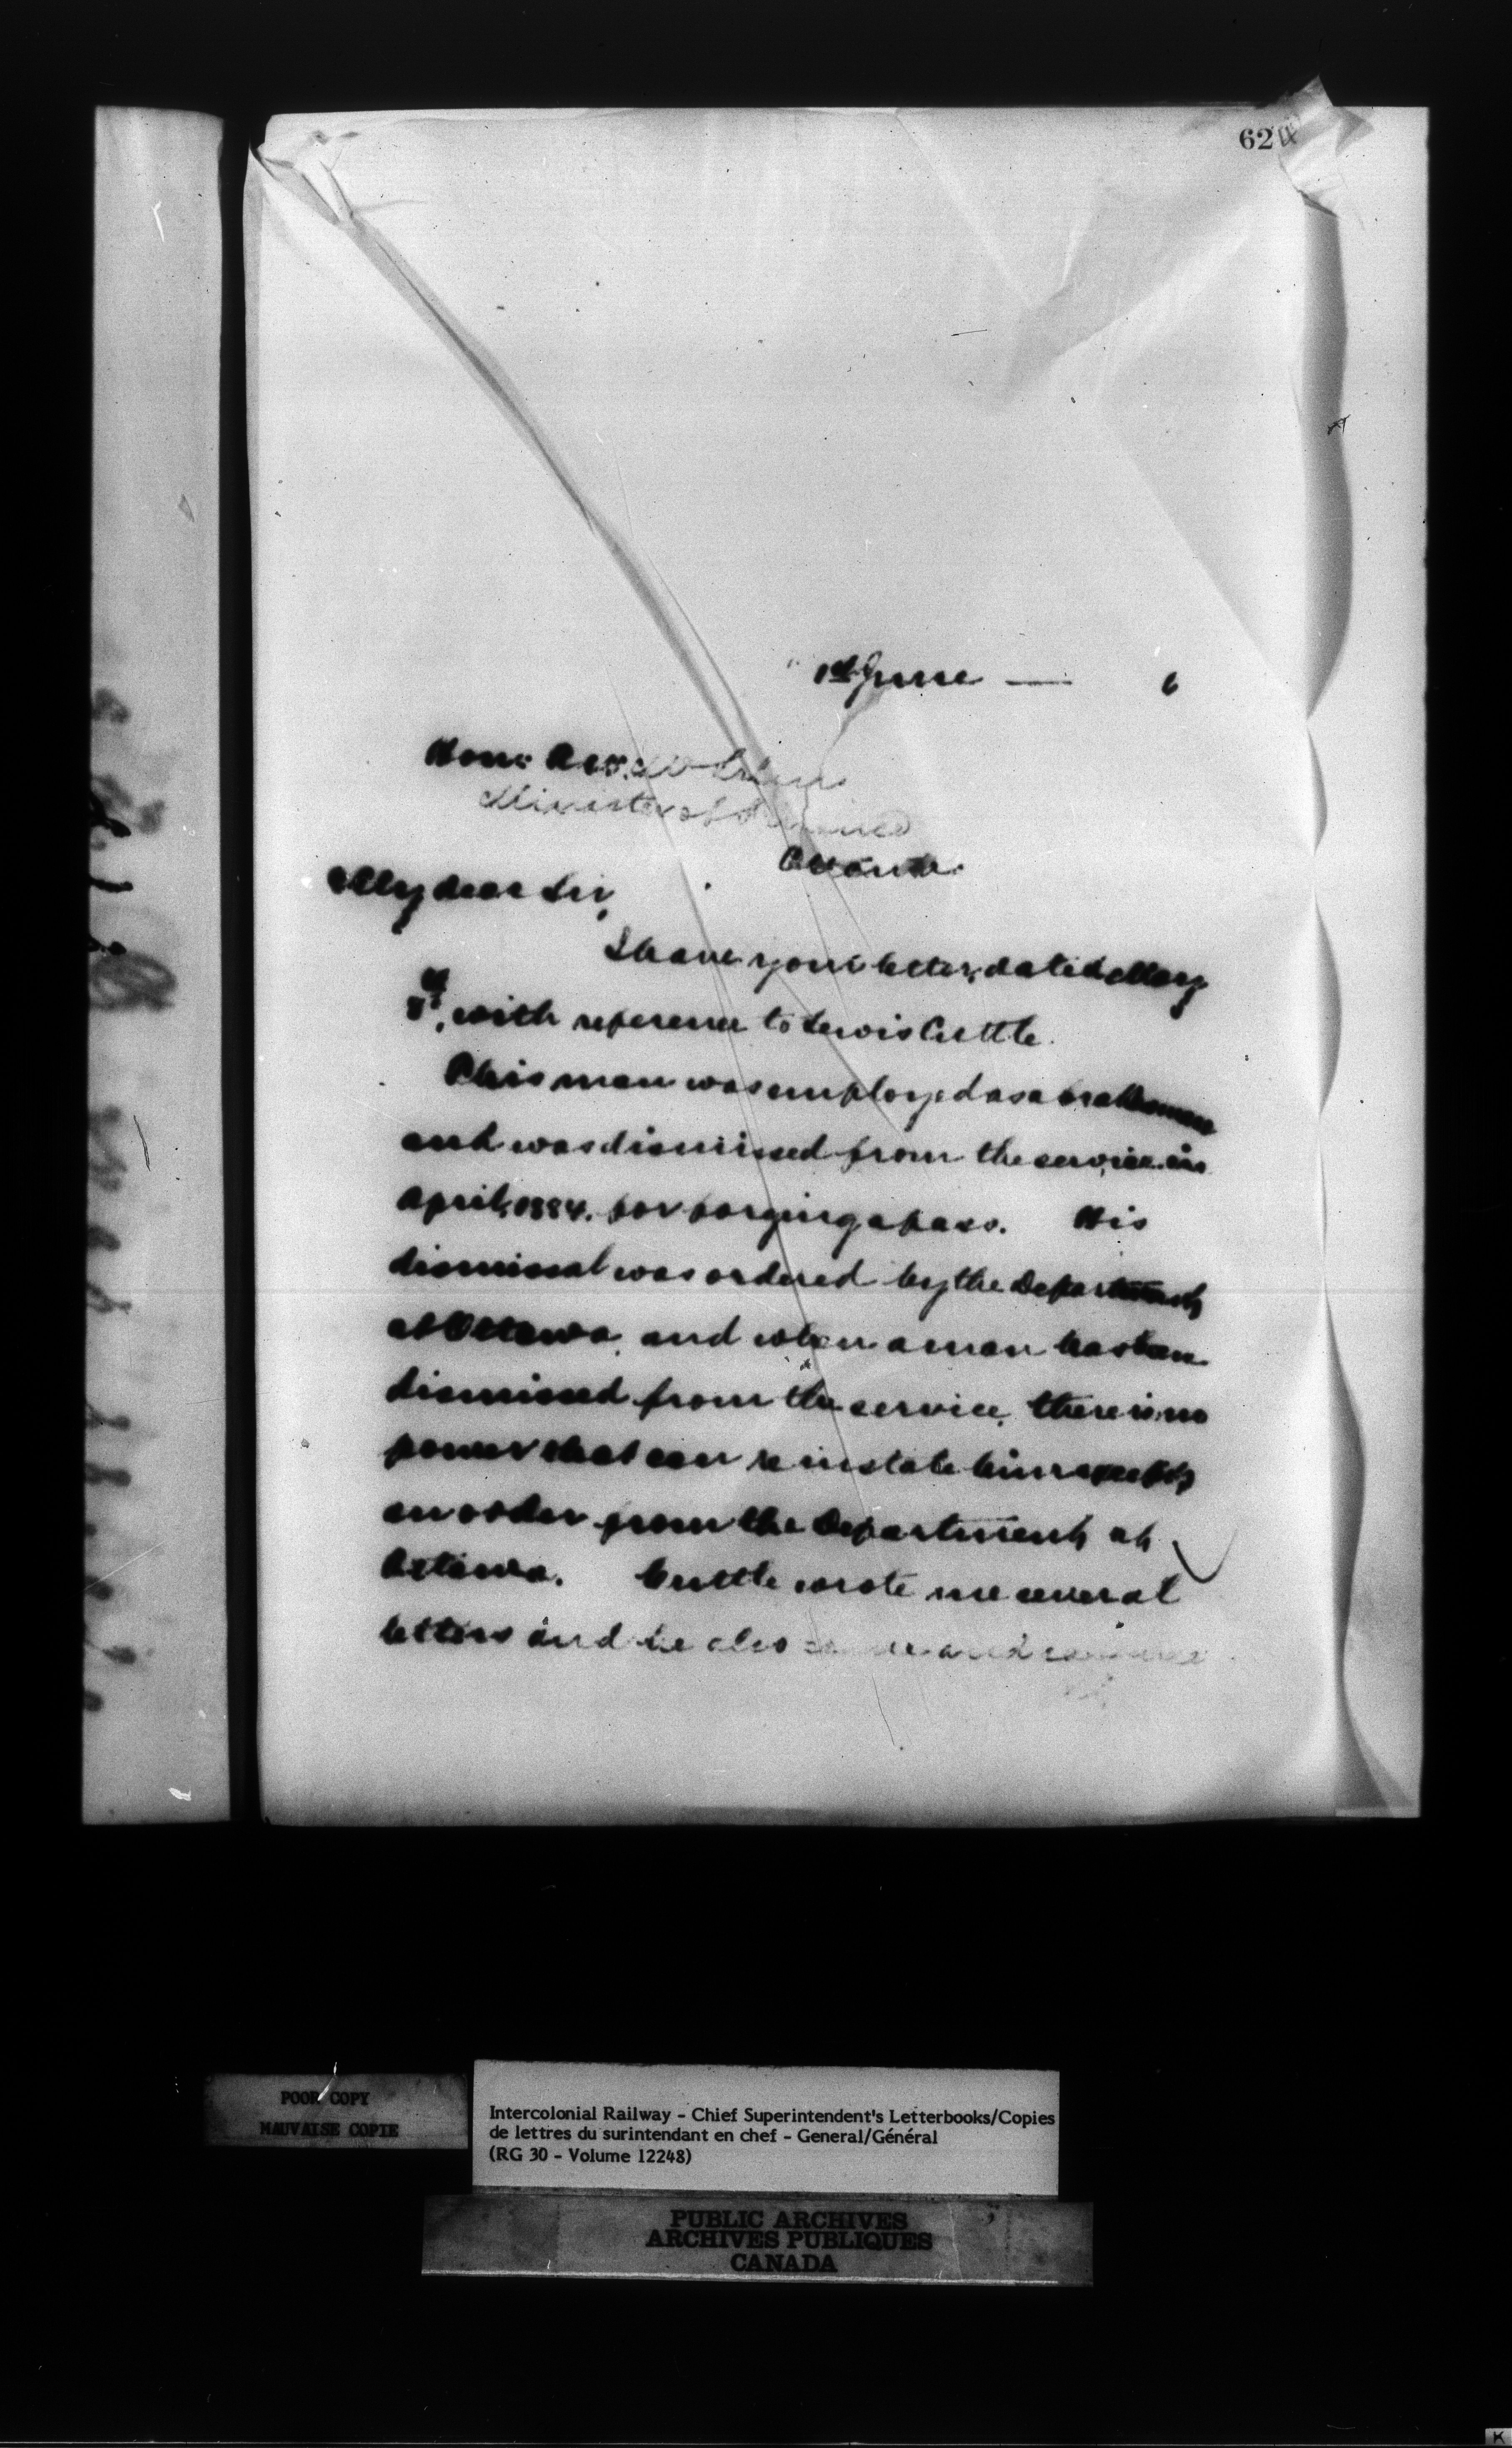 624
1st June — 6
Hon: A. W. McLelan
Minister of Finance
Ottawa.
My dear Sir,
I have your letter, dated May
8th, with reference to Lewis Cuttle.
This man was employed as a brakeman
and was dismissed from the service in
April, 1884. for forging a pass. His
dismissal was ordered by the Department
at Ottawa, and when a man has been
dismissed from the service, there is no
power that can reinstate him except
an order from the Department at
Ottawa. Cuttle wrote me several
letters and he also came and saw me
POOR COPY
MAUVAISE COPIE
Intercolonial Railway - Chief Superintendent's Letterbooks/Copies
de lettres du surintendant en chef - General/Général
(RG 30 - Volume 12248)
PUBLIC ARCHIVES
ARCHIVES PUBLIQUES
CANADA
K